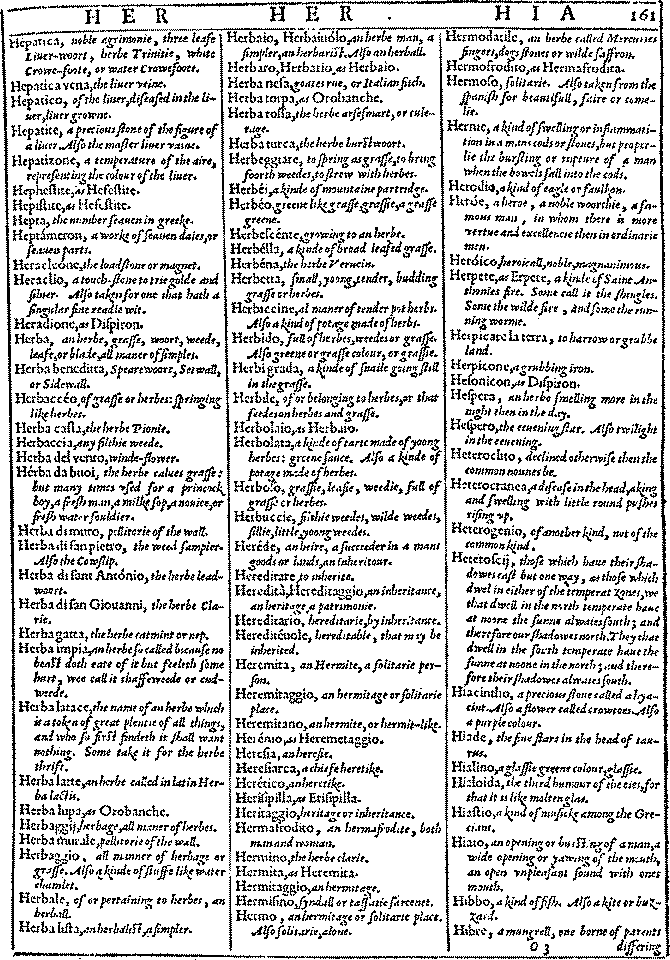 HER HER. HIA 161
Hepatica, noble agrimonie, three leafe
Liuer-woort, herbe Trinitie, white
Crowe-foote, or water Crowefoote.
Hepatica vena, the liuer veine.
Hepatico, of the liuer, diseased in the li-
uer, liuer growne.
Hepatite, a precious stone of the figure of
a liuer. Also the master liuer vaine.
Hepatizone, a temperature of the aire,
representing the colour of the liuer.
Hephestite, as Hefestite.
Hepistite, as Hefestite.
Hepta, the number seauen in greeke.
Heptámeron, a worke of seauen daies, or
seauen parts.
Heracleóne, the loadstone or magnet.
Heraclio, a touch-stone to trie golde and
siluer. Also taken for one that hath a
singular fine readie wit.
Heradione, as Dispiron.
Herba, an herbe, grasse, woort, weede,
leafe, or blade, all maner of simples.
Herba benedítta, Spearewoort, Setwall,
or Sidewall.
Herbaccéo, of grasse or herbes: springing
like herbes.
Herba casta, the herbe Pionie.
Herbaccia, any filthie weede.
Herba del vento, winde-flower.
Hérba da buoi, the herbe calues grasse:
but many times vsed for a princock
boy, a fresh man, a milke sop, a nouice, or
fresh water souldier.
Herba di muro, pellitorie of the wall.
Herba di san pietro, the weed sampier.
Also the Cowslip.
Herba di sant António, the herbe lead-
woort.
Herba di san Giouanni, the herbe Cla-
rie.
Herba gatta, the herbe catmint or nep.
Herba impia, an herbe so called because no
beast doth eate of it but feeleth some
hurt, wee call it chaffeweede or cud-
weede.
Herba latace, the name of an herbe which
is a token of great plentie of all things,
and who so first findeth it shall want
nothing. Some take it for the herbe
thrift.
Herba latte, an herbe called in latin Her-
ba lactis.
Herba lupa, as Orobanche.
Herbaggij, herbage, all maner of herbes.
Herba murale, pellitorie of the wall.
Herbaggio, all manner of herbage or
grasse. Also a kinde of stuffe like water
chamlet.
Herbale, of or pertaining to herbes, an
herball.
Herba lista, an herbalist, a simpler.
Herbaio, Herbaiuólo, an herbe man, a
simpler, an herbarist. Also an herball.
Herbaro, Herbario, as Herbaio.
Herba nesa, goates rue, or Italian fitch.
Herba torpa, as Orobanche.
Herba rossa, the herbe arsesmart, or cule-
rage.
Herba turca, the herbe burstwoort.
Herbeggiare, to spring as grasse, to bring
foorth weedes, to strew with herbes.
Herbéi, a kinde of mountaine partridge.
Herbéo, greene like grasse, grassie, a grasse
greene.
Herbescénte, growing to an herbe.
Herbélla, a kinde of broad leafed grasse.
Herbéna, the herbe Veruein.
Herbetta, small, young, tender, budding
grasse or herbes.
Herbiccine, al maner of tender pot herbs.
Also a kind of potage made of herbs.
Herbido, full of herbes, weedes or grasse.
Also greene or grasse colour, or grassie.
Herbi grada, a kinde of snaile going still
in the grasse.
Herbile, of or belonging to herbes, or that
feedes on herbes and grasse.
Herbolaio, as Herbaio.
Herbolata, a kinde of tarte made of yoong
herbes: greene sauce. Also a kinde of
potage made of herbes.
Herboso, grassie, leafie, weedie, full of
grasse or herbes.
Herbuccie, filthie weedes, wilde weedes,
sillie, little, yoong weedes.
Heréde, an heire, a succeeder in a mans
goods or lands, an inheritour.
Hereditare, to inherite.
Heredità, Hereditaggio, an inheritance,
an heritage a patrimonie.
Hereditario, hereditarie, by inheritance.
Hereditéuole, hereditable, that may be
inherited.
Heremita, an Hermite, a solitarie per-
son.
Heremitaggio, an hermitage or solitarie
place.
Heremitano, an hermite, or hermit-like.
as Heremetaggio.
Heresia, an heresie.
Heresiarca, a chiefe heretike.
Herético, an heretike.
Herisipilla, as Erisipilla.
Heritaggio, heritage or inheritance.
Hermafrodito, an hermafrodite, both
man and woman.
Hermino, the herbe clarie.
Hermita, as Heremita.
Hermitaggio, an hermitage.
Hermisino, syndall or taffatie sarcenet.
Hermo, an hermitage or solitarie place.
Also solitarie, alone.
Hermodatile, an herbe called Mercuries
fingers, dogs stones or wilde saffron.
Hermofrodito, as Hermafrodita.
Hermoso, solitarie. Also taken from the
spanish for beautifull, faire or come-
lie.
Hernie, a kinde of swelling or inflammati-
tion in a mans cods or stones, but proper-
lie the bursting or rupture of a man
when the bowels fall into the cods.
Herodio, a kind of eagle or faulkon.
Heróe, a heroe, a noble woorthie, a fa-
mous man, in whom there is more
vertue and excellencie then in ordinarie
men.
Heróico, heroicall, noble, magnanimous.
Herpete, as Erpete, a kinde of Saint An-
thonies fire. Some call it the shingles.
Some the wilde fire, and some the run-
ning worme.
Herpicare la terra, to harrow or grubbe
land.
Herpicone, a grubbing iron.
Hesonicon, as Dispiron.
Hespera, an herbe smelling more in the
night then in the day.
Hespero, the euening star. Also twilight
in the euening.
Heteroclito, declined otherwise then the
common nounes be.
Heterocranea, a disease in the head, aking
and swelling with little round pushes
rising vp.
Heterogenio, of another kind, not of the
common kind.
Heteroscij, those which haue their sha-
dowes cast but one way, as those which
dwel in either of the temperat zones, we
that dwell in the north temperate haue
at noone the sunne alwaies south; and
therefore our shadowes north. They that
dwell in the south temperate haue the
sunne at noone in the north; and there-
fore their shadowes alwaies south.
Hiacinthio, a precious stone called a hya-
cint. Also a flower called crowtoes. Also
a purple colour.
Hiade, the fiue stars in the head of tau-
rus.
Hialino, a glassie greene colour, glassie.
Hialoida, the third humour of the eies, for
that it is like molten glas.
Hiastio, a kind of musicke among the Gre-
cians.
Hiato, an opening or bursting of a man, a
wide opening or yawing of the mouth,
an open vnpleasant sound with ones
mouth.
Hibbo, a kind of fish. Also a kite or buz-
zard.
Hibre, a mungrell, one borne of parents
O 3 differing